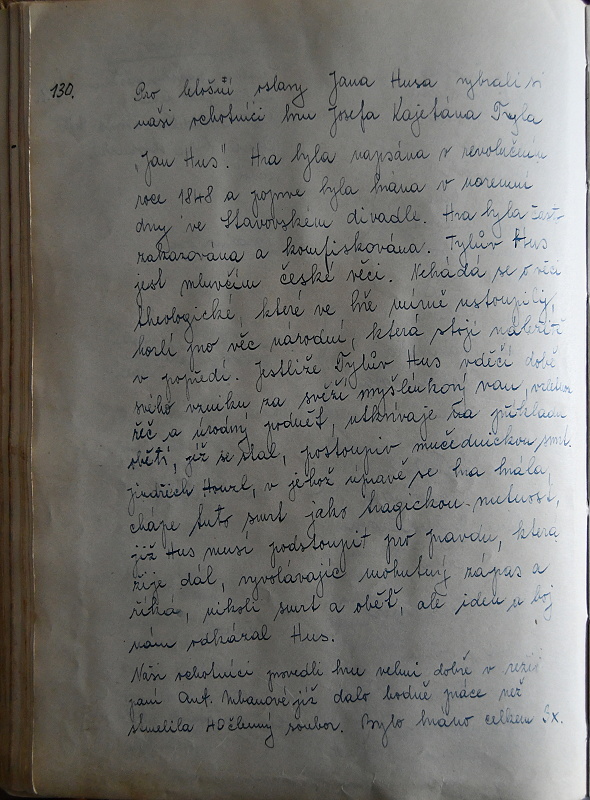 130.
Pro letošní oslavy Jana Husa vybrali si
naši ochotníci hru Josefa Kajetána Tyla
„Jan Hus". Hra byla napsána v revolučním
roce 1848 a poprve byla hrána v
dny ve Stavovském divadle. Hra byla část.
zakazována a konfiskována. Tylův Hus
jest mluvčím české věci. Nehádá se o věci
theologické, které ve hře mírně ustoupily,
horlí pro věc národní, která stojí náležitě
v popředí. Jestliže Tylův Hus vděčí době
svého vzniku za svěží myšlenkový van,
řeč a úrodný podnět, utkvívá na příkladu
oběti, jíž se stal, postoupiv mučednickou smrt.
Jindřich Honzl, v jehož úpravě se hra hrála,
chápe tuto smrt jako tragickou nutnost,
již Hus musí podstoupit pro pravdu, která
žije dál, vyvolávajíc mohutný zápas a
říká, nikoli smrt a oběť, ale ideu a boj
nám odkázal Hus.
Naši ochotníci provedli hru velmi dobře v režii
paní Ant. Urbanové jíž dalo hodně práce než
stmelila 40členný soubor. Bylo hráno celkem 3x.